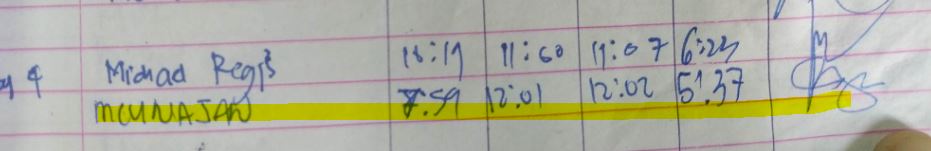 4 Michad Regis 18:19 11:60 11:07 6:23
MCUNAJAN 7:59 12:01 12:02 51.37